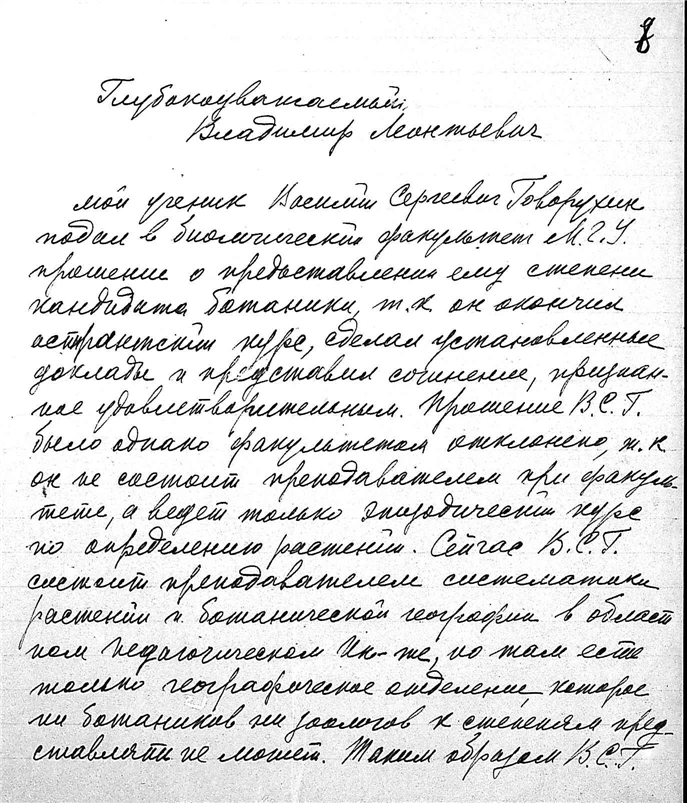 8
Глубокоуважаемый,
Владимир Леонтьевич
мой ученик Василий Сергеевич Говорухин
подал в биологический факультет М.Г.У.
прошение о предоставлении ему степени
кандидата ботаники, т.к он окончил
аспирантский курс, сделал установленные
доклады и представил сочинение, признан-
ное удовлетворительным. Прошение В.С.Г.
было однако факультетом отклонено, т.к
он не состоит преподавателем при факуль-
тете, а ведет только эпизодический курс
по определению растений. Сейчас В.С.Г.
состоит преподавателем систематики
растений и ботанической географии в област
ном педагогическом Ин-те, но там есть
только географическое отделение, которое
ни ботаников ни зоологов к степеням пред-
ставлять не может. Таким образом В.С.Г.